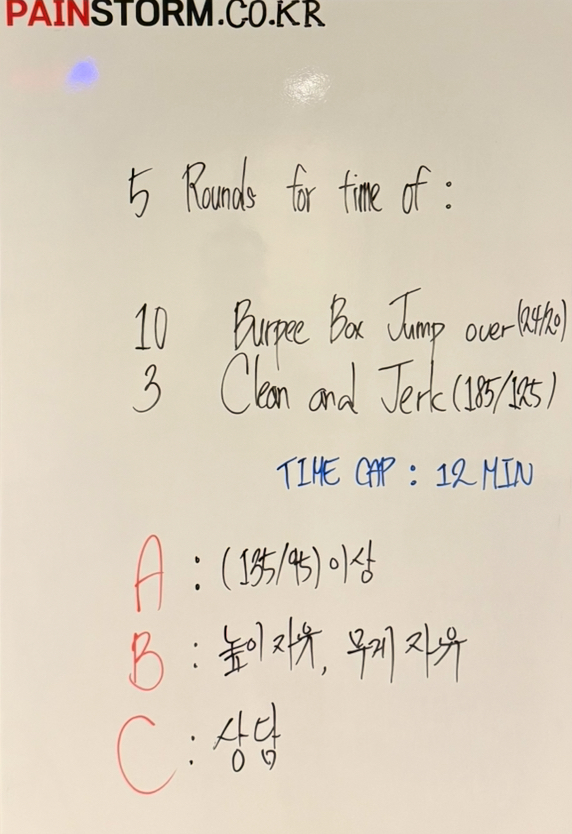 PAINSTORM.CO.KR
5 Rounds for time of :
10 Burpee Box Jump over (24/20)
3 Clean and Jerk (185/125)
TIME CAP : 12 MIN
A : (135/95) 이상
B : 높이 자유, 무게 자유
C : 상담